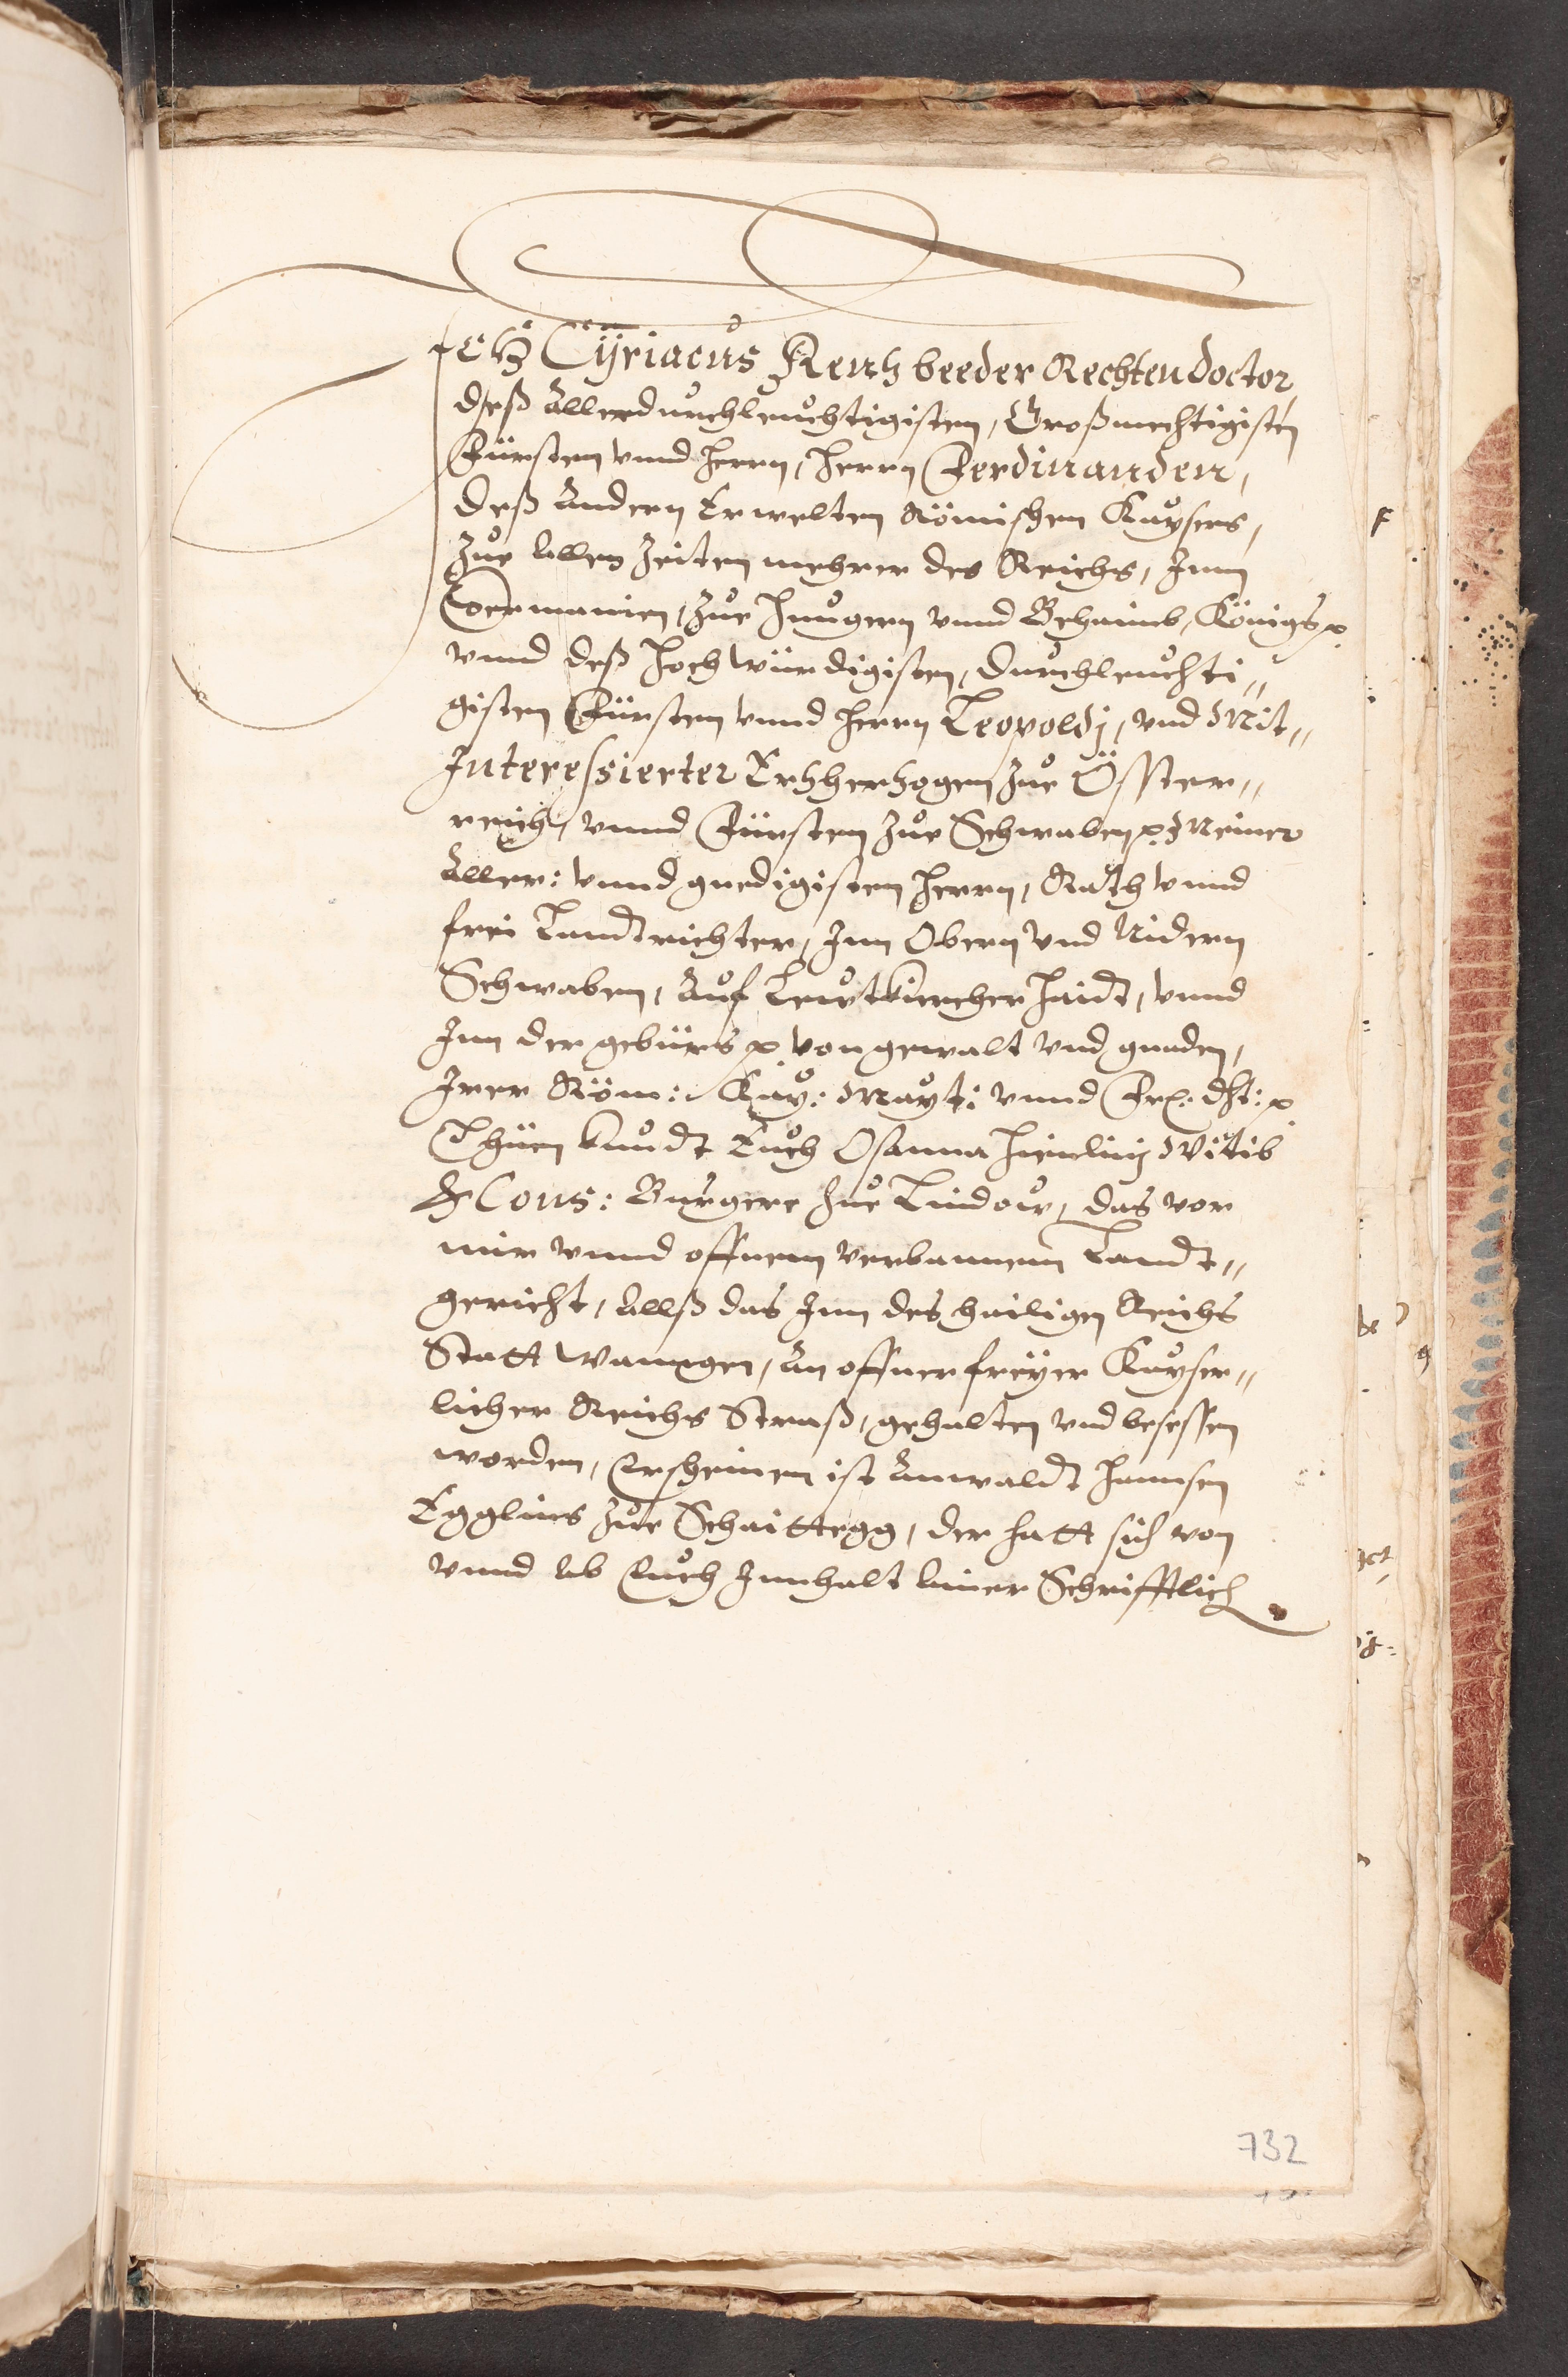 Ich Cÿriacus Rentz beeder Rechten Doctor,
deß Allerdurchleuchtigisten, Großmechtigisten
Fürsten vnnd Herrn, Herrn Ferdinanden,
deß Andern Erwelten Römischen Kaysers,
Zue Allen Zeiten mehrer des Reichs, Inn
Germanien, Zue Hungern vnnd Behaimb, Königs
vnnd deß Hochwürdigisten, Durchleuchti„
gisten Fürsten vnnd Herrn Leopoldj, vnd Mit„
Interessierter Ertzhertzogen Zue Öster„
reich, vnnd Fürsten Zue Schwaben Meiner
Aller: vnnd gnedigisten Herrn, Rath vnnd
frei Landtrichter, Inn Obern vnd Nidern
Schwaben, Auf Leutkürcher Haidt, vnnd
Inn der gebürs von gewalt vnd gnaden,
Irer Röm: Kay: Mayt: vnnd Frl: dht:
Thuen kundt Euch Osanna Witib
& Cons: Burgere Zue Lindow, das vor
mir vnnd offnem verbannem Landt„
gericht, Allß das Inn des hailigen Reichs
Statt Wanngen, An offner freÿer Kayser„
licher Reichs Straß, gehalten vnd besessen
worden, Erscheinen ist Anwaldt Hannsen
Egglins Zue Schaittegg, der hatt sich von
vnnd ab Euch Innhalt Ainer Schrifftlich
732